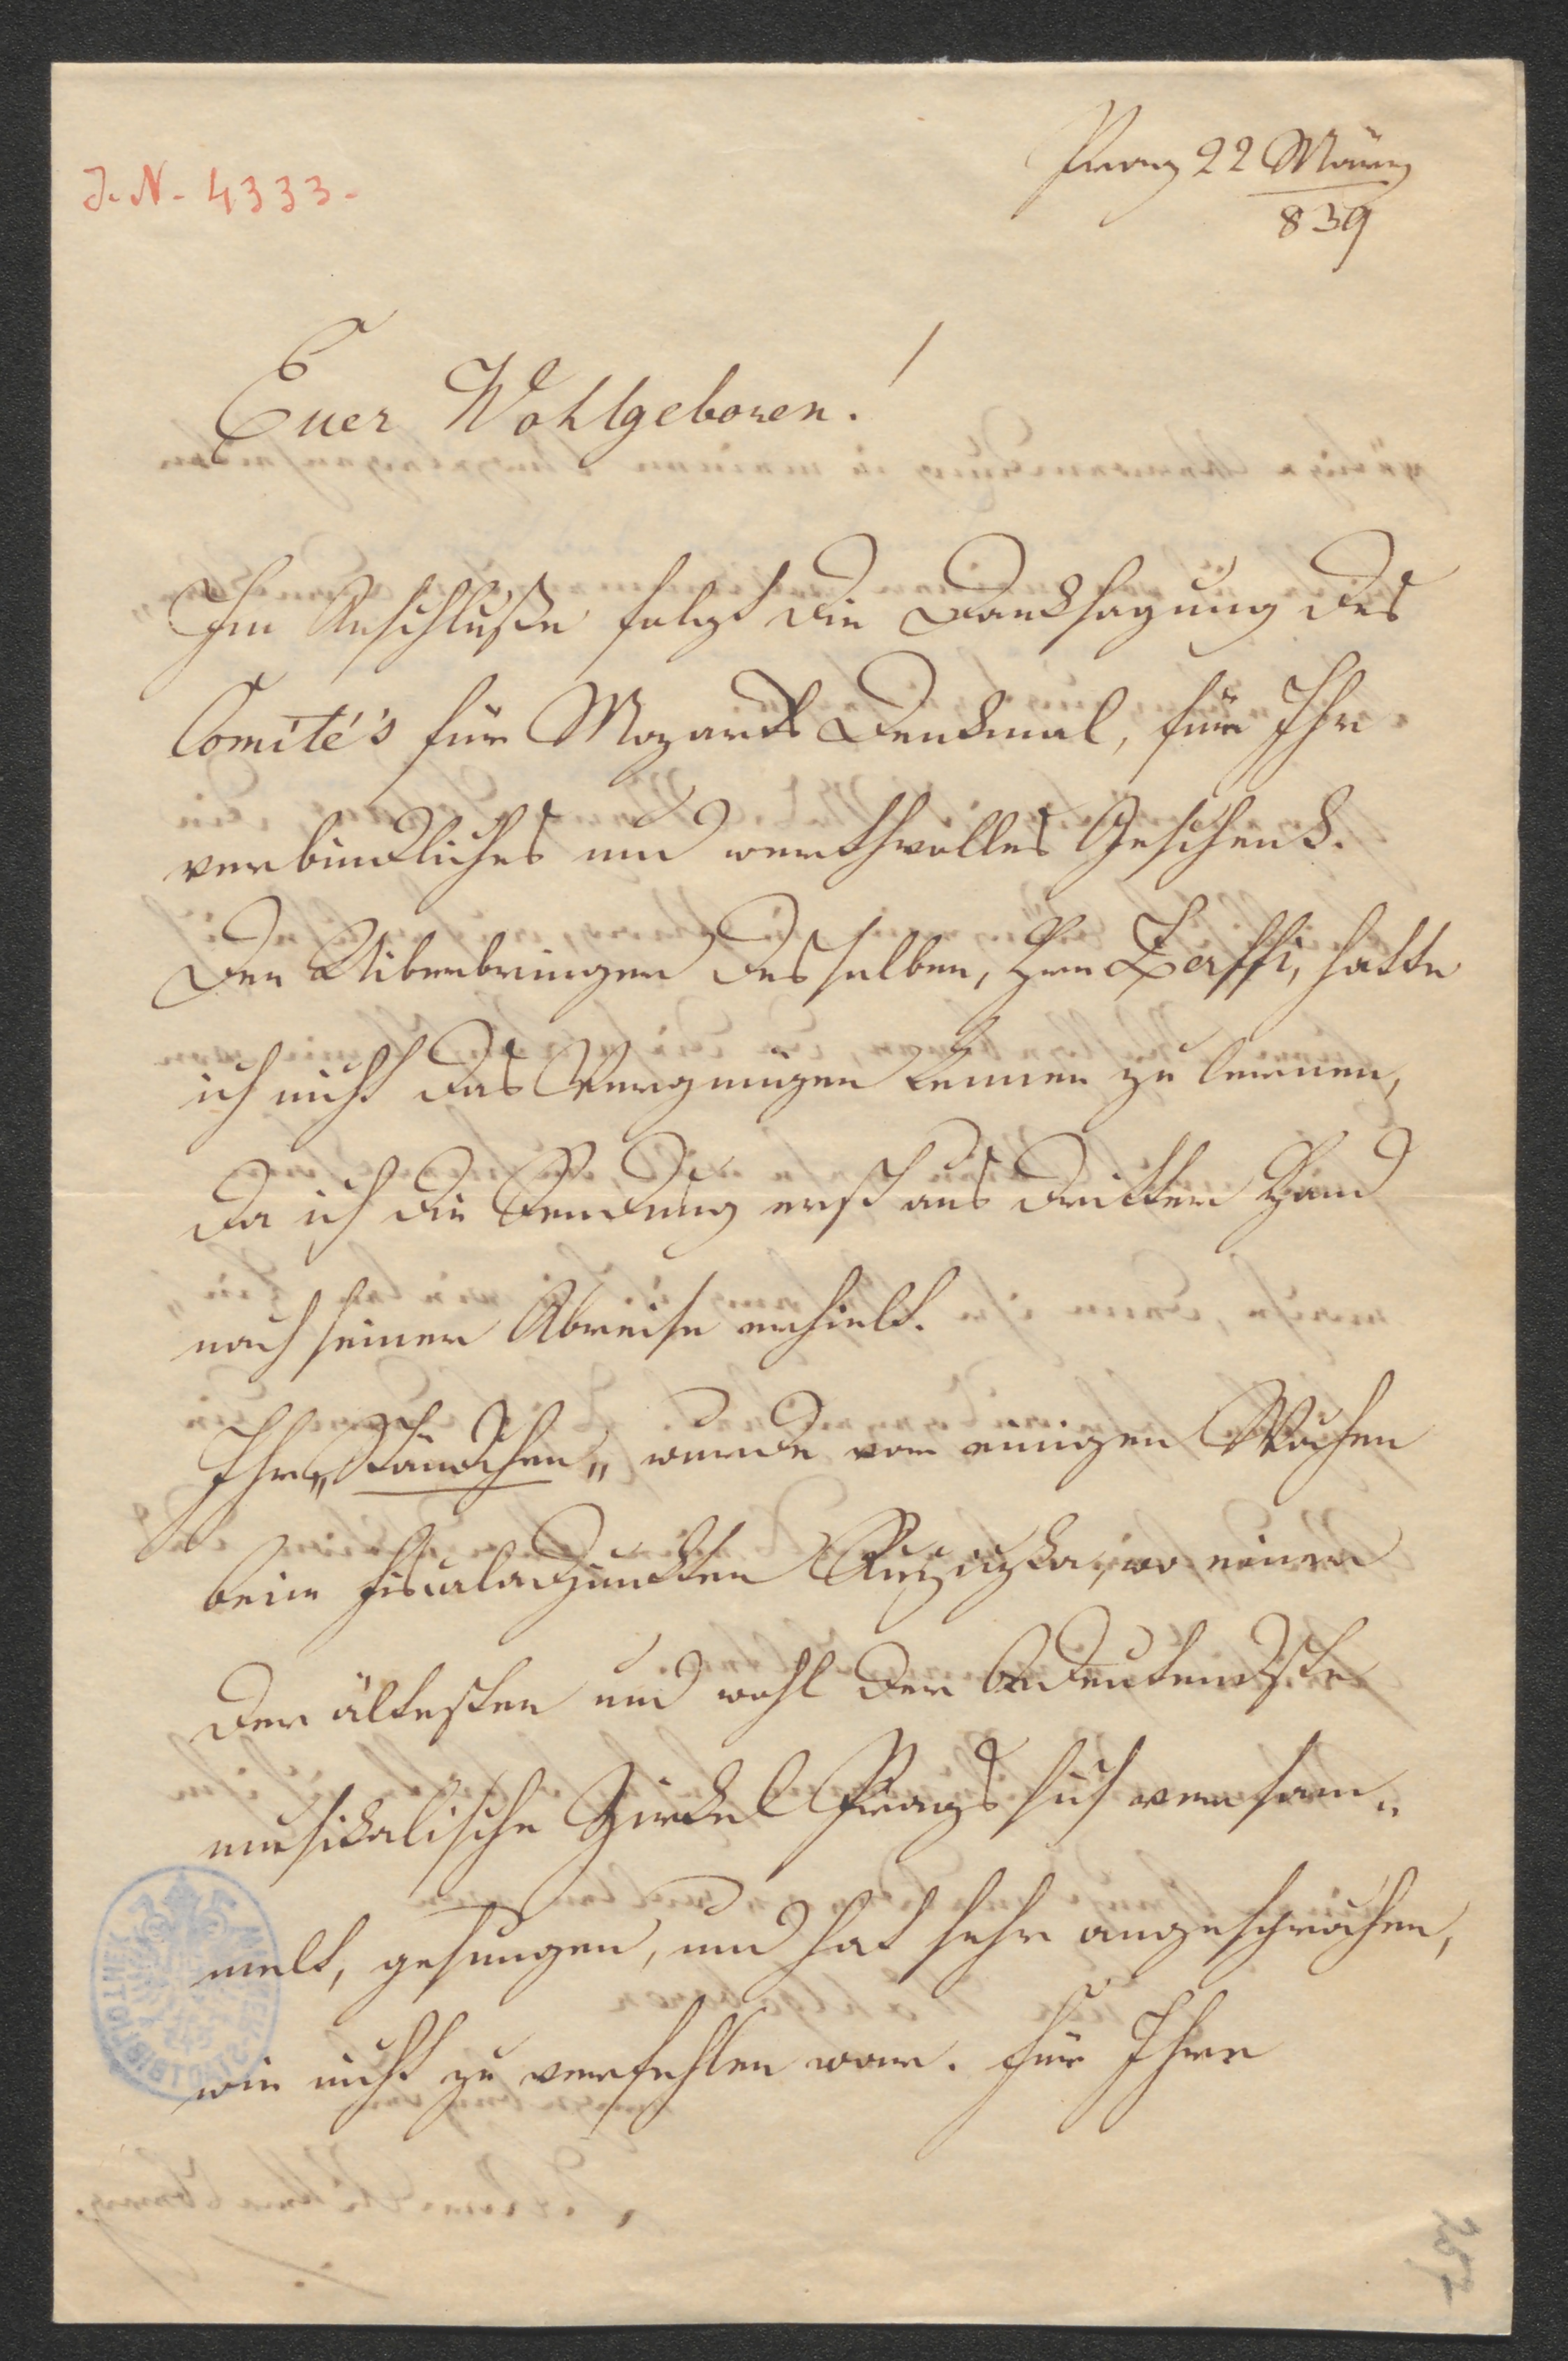 J. N. - 4333 -
Prag 22 März
839
Euer Wohlgeboren!
Im Anschluße folgt die Danksagung des
Comité's für Mozarts Denkmal, für Ihr
verbindliches und werthvolles Geschenk.
Der Uiberbringer desselben, Hrn Zerffi, hatte
ich nicht das Vergnügen kennen zu lernen,
da ich die Sendung erst aus dritter Hand
nach seiner Abreise erhielt.
Ihr „ Täubchen „ wurde vor einigen Wochen
beim Fiskaladjunkten Ružiczka, wo einer
der ältesten und wohl der bedeutendste
musikalische Zirkel Prags sich versam„
melt, gesungen, und hat sehr angesprochen,
wie nicht zu verfehlen war. Für Ihre